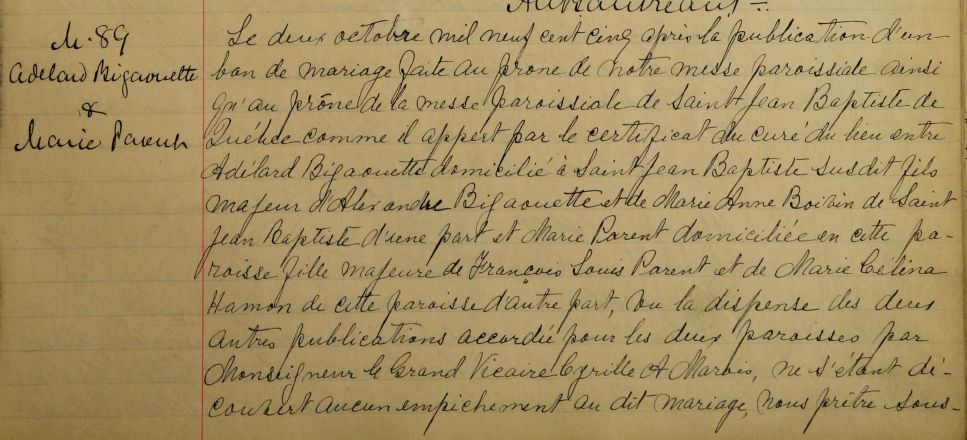 M. 89
Adelard Bigaouette
&
Marie Parent
Le deux octobre mil neuf cent cinq après la publication d'un
ban de mariage faite au prône de notre messe paroissiale ainsi
qu'au prône de la messe paroissiale de Saint Jean Baptiste de
Québec comme il appert par le certificat du curé du lieu entre
Adélard Bigaouette domicilié à Saint Jean Baptiste susdit fils
majeur d'Alexandre Bigaouette et de Marie Anne Boivin de Saint
Jean Baptiste d'une part et Marie Parent domiciliée en cette pa-
roisse fille majeure de François Louis Parent et de Marie Célina
Hamon de cette paroisse d'autre part, vu la dispense des deux
autres publications accordée pour les deux paroisses par
Monseigneur le Grand Vicaire Cyrille A Marois, ne s'étant dé-
couvert aucun empêchement au dit mariage, nous prêtre sous-